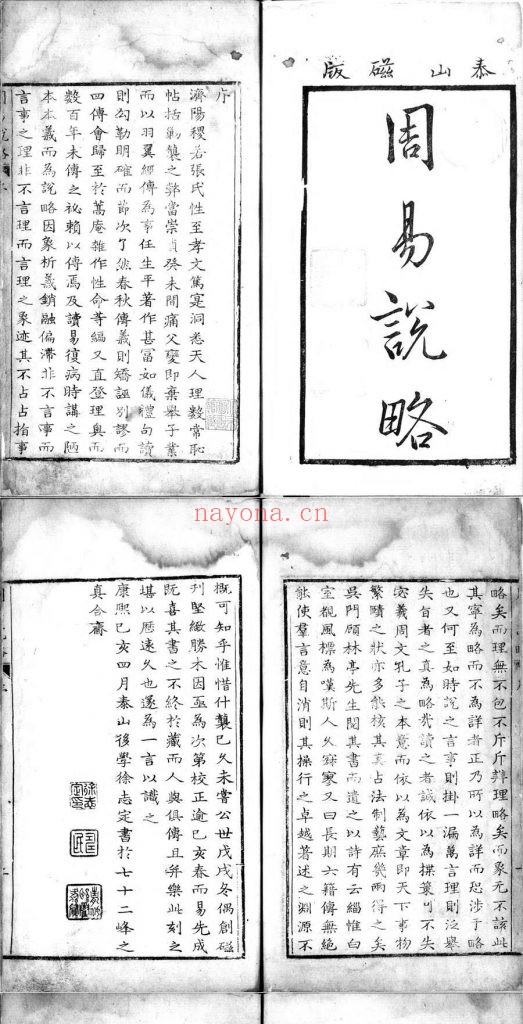 泰山磁版
周易說略
序
濟陽稷若張氏性至孝文篤寔洞悉天人理數常恥
帖括剿襲之弊當崇貞癸未間痛父變即棄舉子業
而以羽翼經傳為事任生平著作甚冨如儀禮句讀
則勾勒明確而節次了然春秋傳義則矯誣別謬而
四傳會歸至於蒿庵雜作性命等編又直登理奥而
數百年未傳之祕賴以傳焉及讀易復病時講之陋
本本義而為說略因象析義銷融偏滯非不言事而
言事之理非不言理而言理之象迹其不占占拍事
略矣而理無不包不斤斤理略矣而象无不該此
其寧為略而不為詳者正乃所以為詳而恐涉于略
也又何至如時說之言事則掛一漏萬言理則泛舉
失自者之真為略哉讀之者誠依以為業可不失
宓羲周文孔子之本意而依以為文章即天下事物
繁賾之狀亦多能核其裏占法制藝庶幾兩得之矣
吳門顧林亭先生閱其書而遺之以詩有云緇帷白
室觀風標為嘆斯人久寂寥又曰長期六籍傳無絕
能使羣言意自消則其操行之卓越著述之淵源不
概可知乎惟惜什襲已久未嘗公世戊戌冬偶創磁
刊堅緻勝木因亟為次第校正逾己亥春而易先成
既喜其書之不終於藏而人與俱傳且并樂此刻之
堪以歷遠久也遂為一言以識之
康熙己亥四月泰山後學徐志定書於七十二峰之
真合齋
nayona.cn